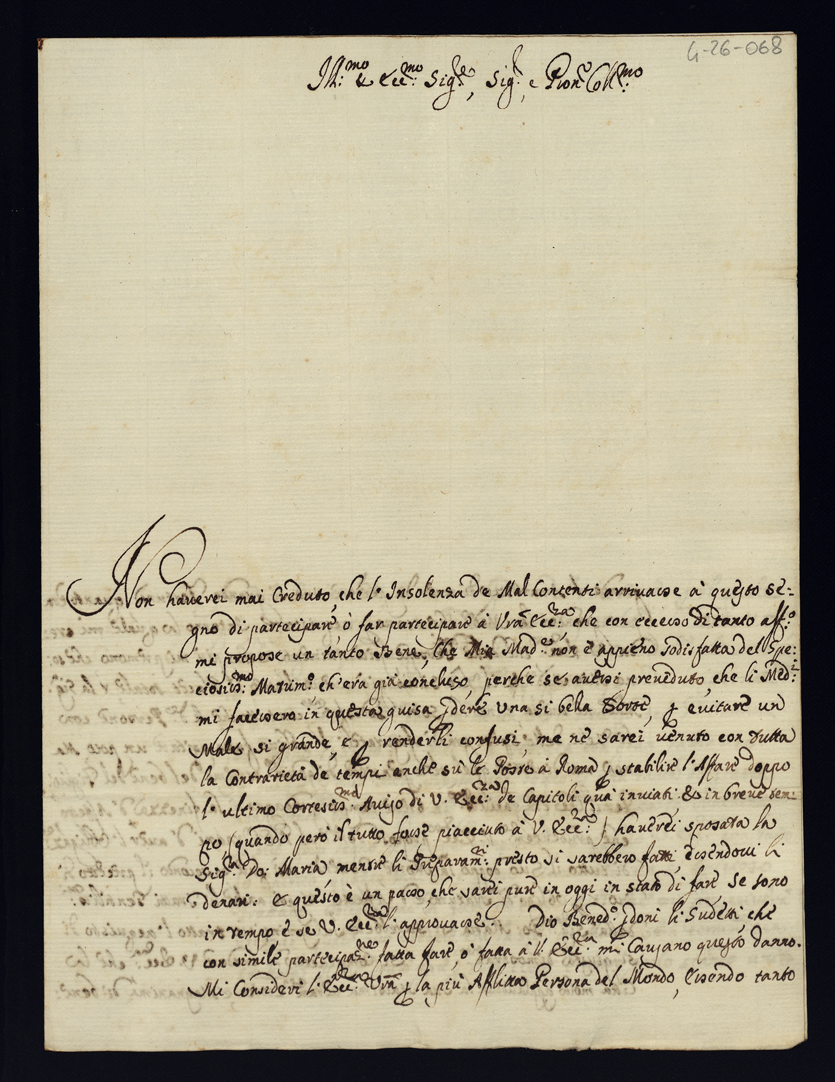 4-26-068
Ill:mo & Ecc:mo Sig.re, Sig.r e Pron Coll:mo
Non haverei mai Creduto, che l'Insolenza de Mal Contenti arrivasse à questo se-
gno di partecipare ò far partecipare à Vra Ecc:za che con eccesso di tanto aff.o
mi propose un tanto Bene, che Mia Mad.e non è appieno sodisfatta del Spe-
ciosiss:mo Matrim.o ch'era già concluso, perche se avessi preveduto che li Med:i
mi facessero in questa guisa perdere una si bella Sorte, per evitare un
Male si grande, e per renderli confusi, me ne sarei venuto con tutta
la Contrarietà de tempi anche sù le Poste à Roma per stabilire l'Affare doppo
l'ultimo Cortesiss:mo Aviso di V. Ecc:za de Capitoli quà inviati & in breve tem-
po (quando però il tutto fosse piacciuto à V. Ecc:za) haverei sposata la
Sig:ra Da: Maria mentre li Preparam:ti presto si sarebbero fatti essendovi li
denari: e questo è un passo, che sarei pure in oggi in stato di fare se sono
in tempo e se V. Ecc:za l'approvasse. Dio Bened.o perdoni li Sudetti che
con simile partecipa:ne fatta fare, ò fatta à V. Ecc:za mi Causano questo danno.
Mi Consideri l'Ecc:za Vra per la più Afflitta Persona del Mondo, essendo tanto